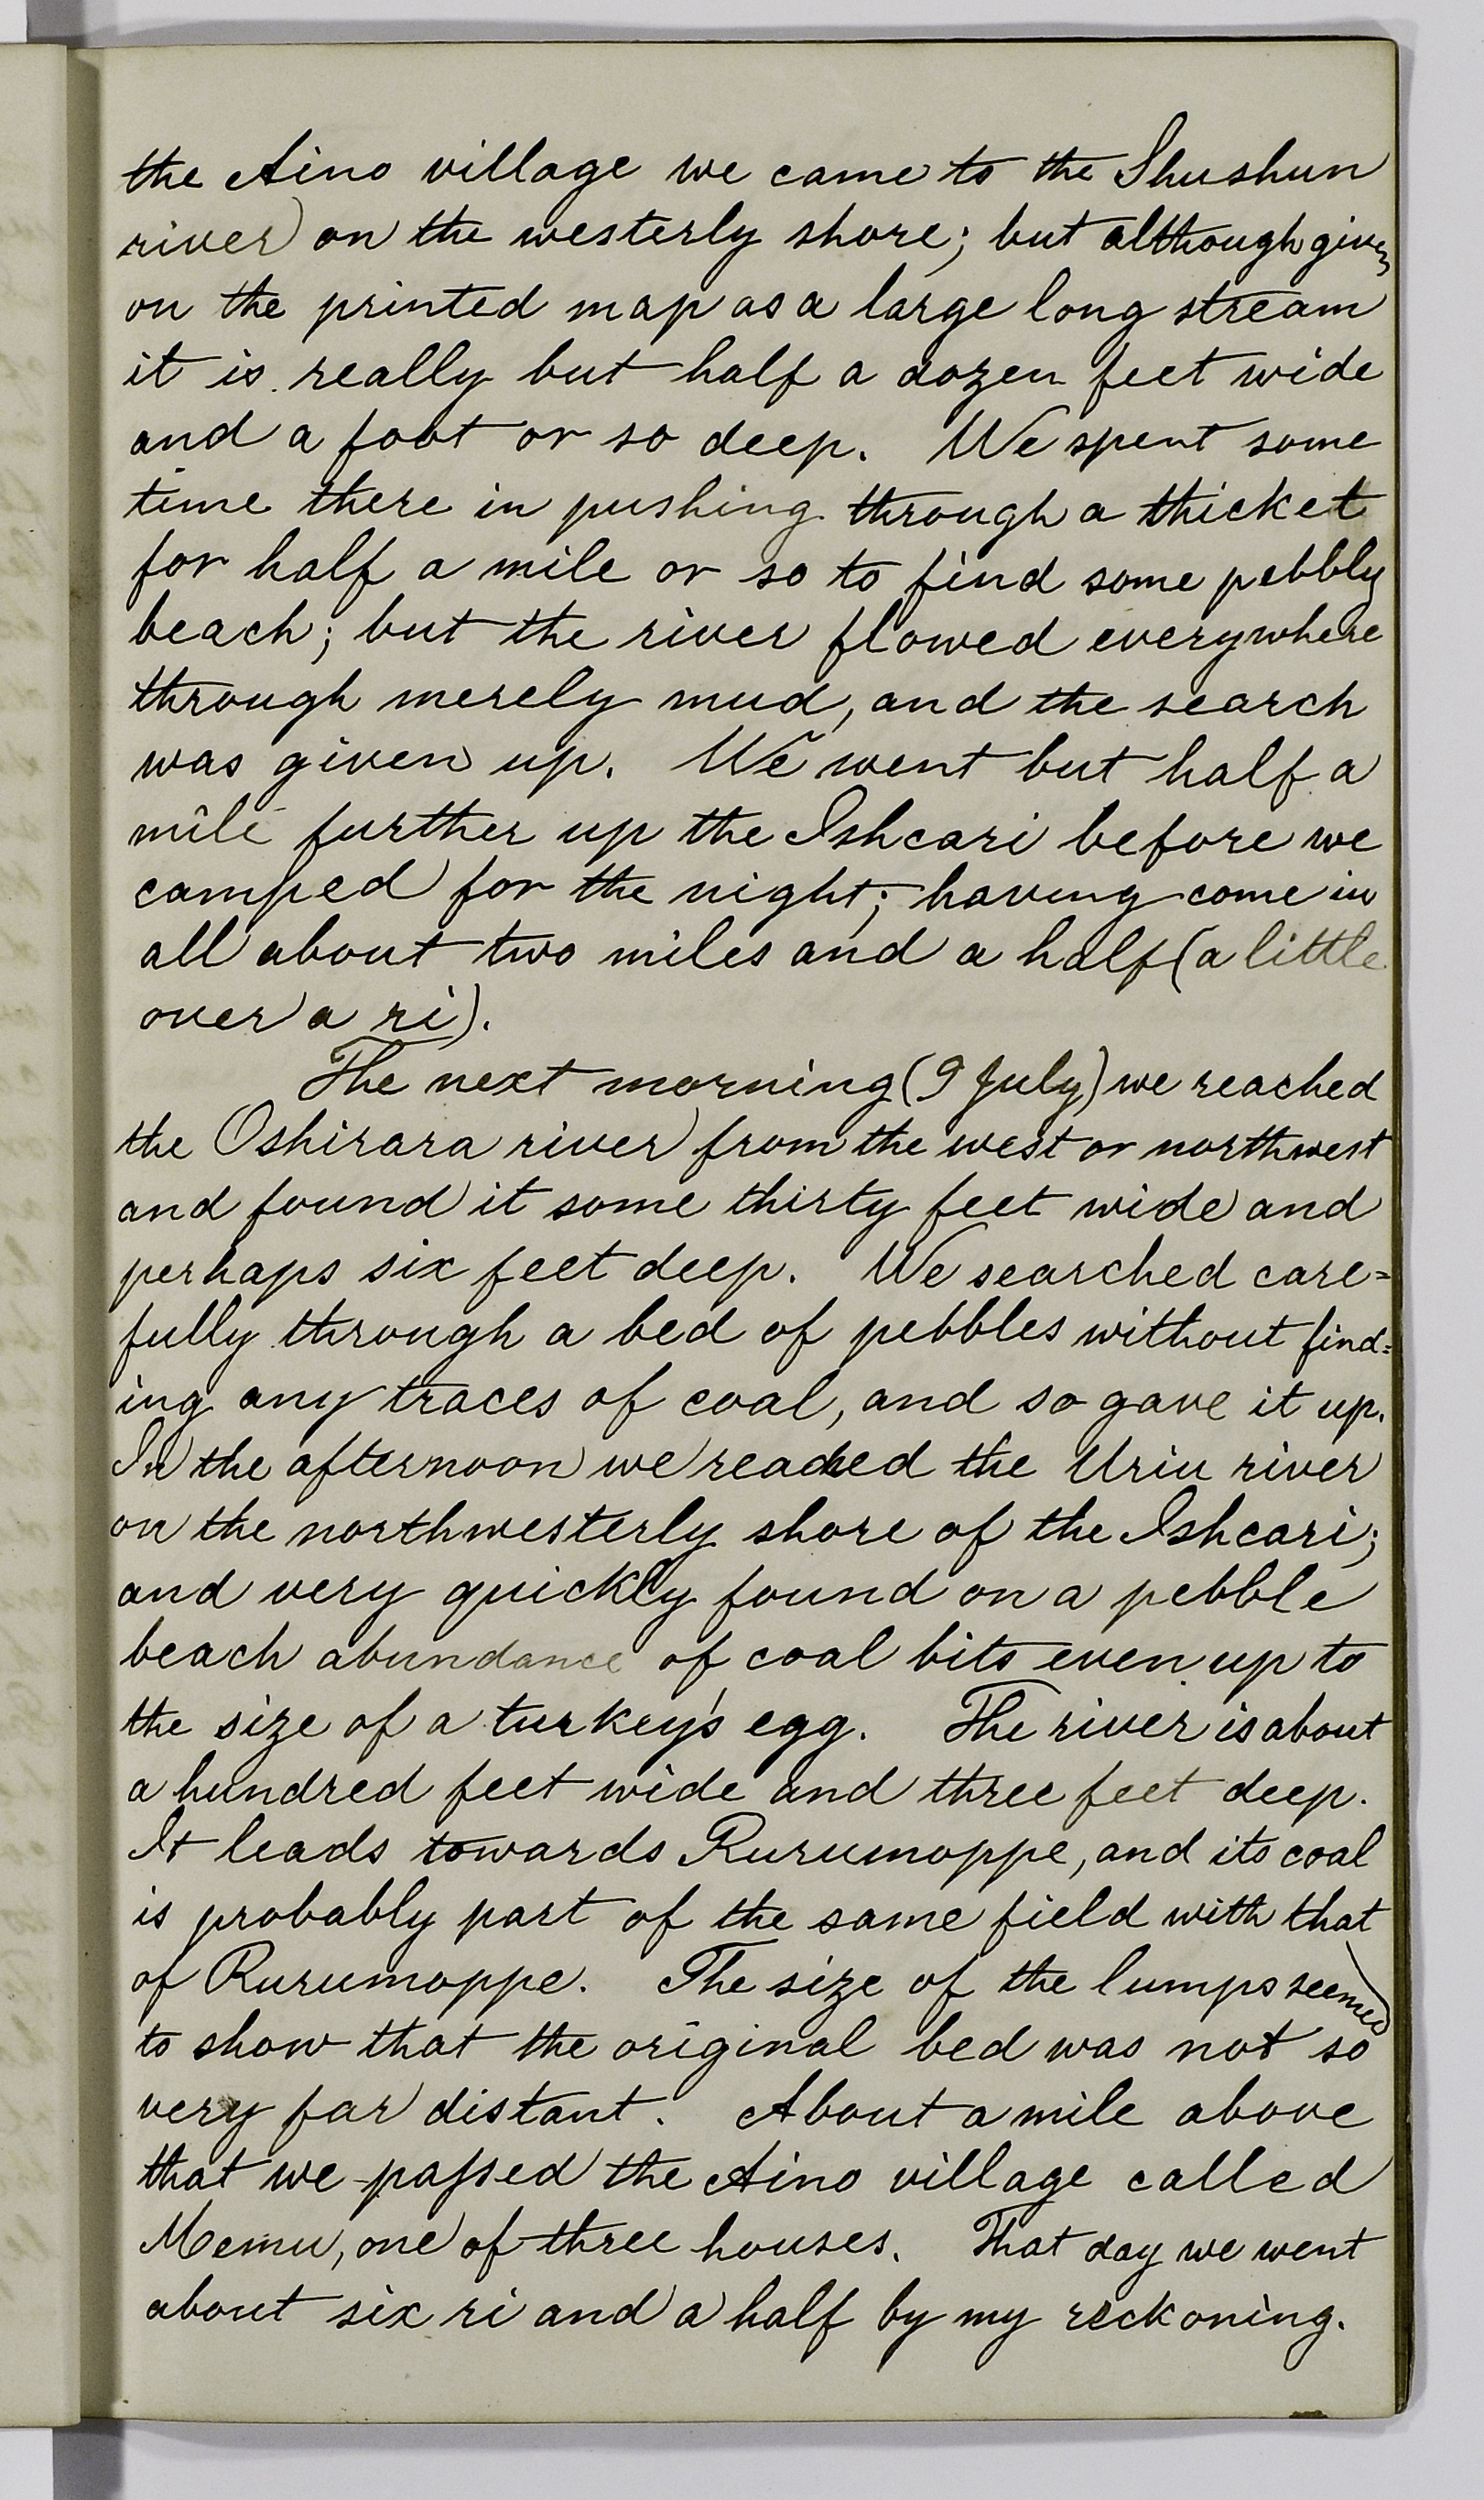 the Aino village we came to the Shushun
river on the westerly shore; but although given
on the printed map as a large long stream
it is really but half a dozen feet wide
and a foot or so deep. We spent some
time there in pushing through a thicket
for half a mile or so to find some pebbly
beach; but the river flowed everywhere
through merely mud, and the search
was given up. We went but half a
mile further up the Ishcari before we
camped for the night; having come in
all about two miles and a half (a little
over a ri).
The next morning (9 July) we reached
the Oshirara river from the west or northwest
and found it some thirty feet wide and
perhaps six feet deep. We searched care=
fully through a bed of pebbles without find=
ing any traces of coal, and so gave it up.
In the afternoon we reached the Uriu river
on the northwesterly shore of the Ishcari;
and very quickly found on a pebble
beach abundance of coal bits even up to
the size of a turkey's egg. The river is about
a hundred feet wide and three feet deep.
It leads towards Rurumoppe, and its coal
is probably part of the same field with that
of Rurumoppe. The size of the lumps seemed
to show that the original bed was not so
very far distant. About a mile above
that we paſsed the Aino village called
Memu, one of three houses. That day we went
about six ri and a half by my reckoning.